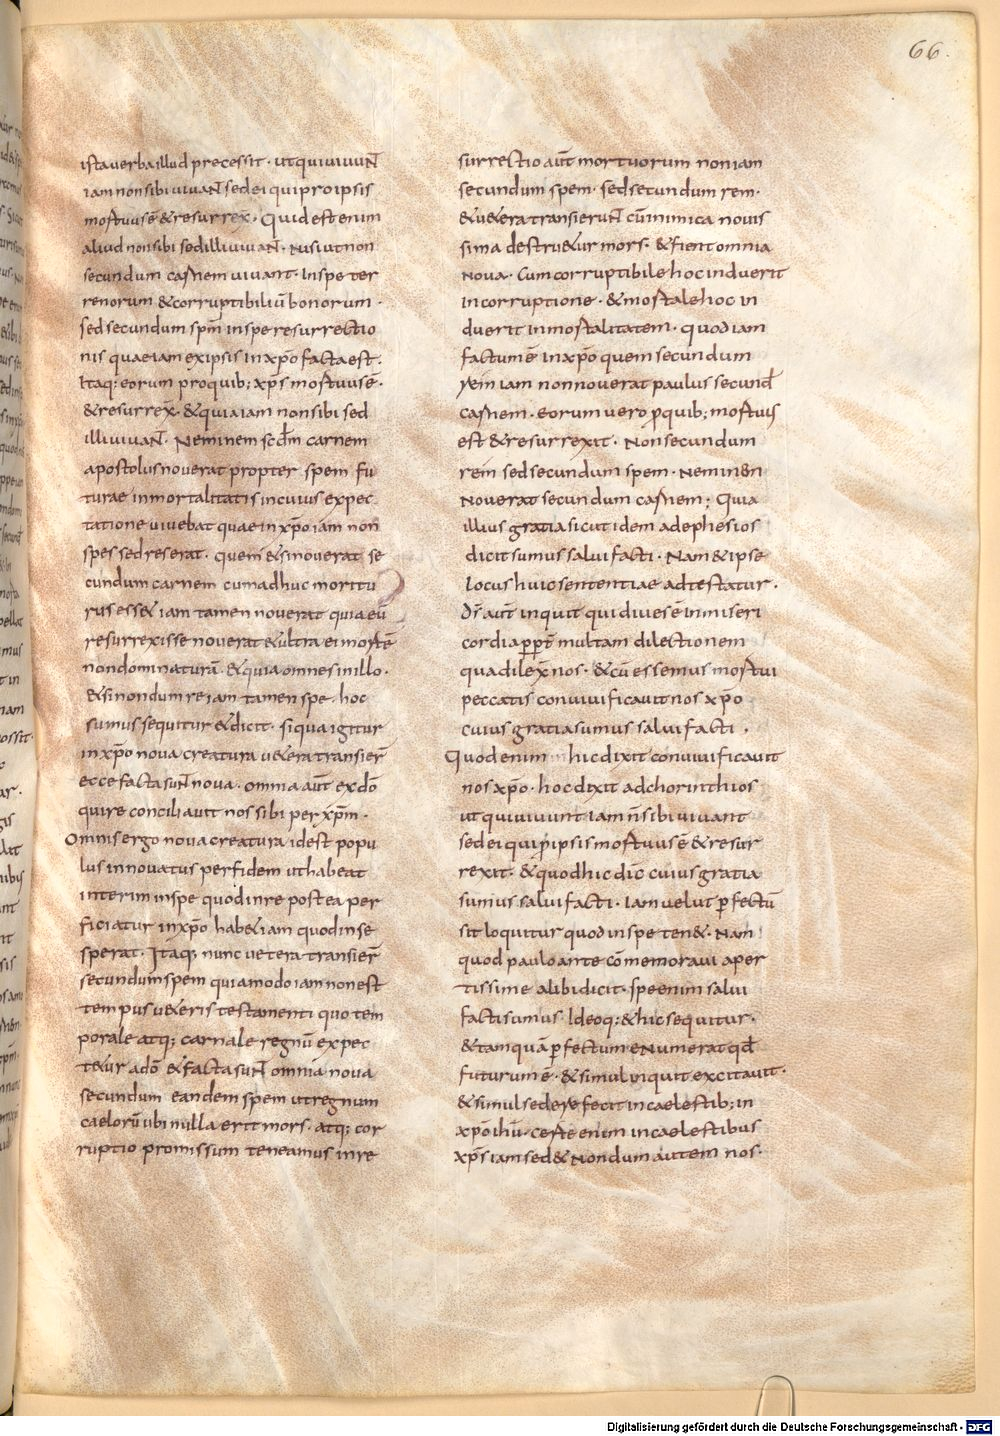 66.
ista uerba illud precessit · ut qui uiuunt
iam non sibi uiuant sed ei qui pro ipsis
mortuus ē & resurrex̄ · Quid est enim
aliud non sibi sed illi uiuant · Nisi ut non
secundum carnem uiuant · In spe ter
renorum & corruptibiliū bonorum ·
sed secundum sp̄m in spe resurrectio
nis quae iam ex ipsis in xp̄o facta est ·
Itaq; eorum pro quib; xp̄s mortuus ē ·
& resurrex̄ · & quia iam non sibi sed
illi uiuant · Neminem scd̄m carnem
apostolus nouerat propter spem fu
turae inmortalitatis in cuius expec
tatione uiuebat quae in xp̄o iam non
spes sed res erat · quem & si nouerat se
cundum carnem cum adhuc moritu
rus ess& iam tamen nouerat quia eū
resurrexisse nouerat & ultra ei mortē
non dominaturā · & quia omnes in illo ·
& si nondum re iam tamen spe · hoc
sumus sequitur & dicit · si qua igitur
in xp̄o noua creatura u&era transier̄
ecce facta sunt noua · omnia aūt ex d̄o
qui reconciliauit nos sibi per xp̄m ·
Omnis ergo noua creatura id est popu
lus innouatus per fidem ut habeat
interim in spe quod in re postea per
ficiatur in xp̄o hab& iam quod in se
sperat · Itaq; nunc uetera transier̄
secundum spem quia modo iam non est
tempus u&eris testamenti quo tem
porale atq; carnale regnū expec
t&ur a d̄o & facta sunt omnia noua
secundum eandem spem ut regnum
caelorū ubi nulla erit mors · atq; cor
ruptio promissum teneamus in re
surrectio aūt mortuorum non iam
secundum spem · sed secundum rem ·
& u&era transierunt cū inimica nouis
sima destru&ur mors · & fient omnia
noua · Cum corruptibile hoc induerit
incorruptione · & mortale hoc in
duerit inmortalitatem · quod iam
factum ē in xp̄o quem secundum
rem iam non nouerat paulus secund̄
carnem · eorum uero p̱ quib; mortuus
est & resurrexit · Non secundum
rem sed secundum spem · neminem
nouerat secundum carnem; Quia
illius gratia sicut idem ad ephesios
dicit sumus salui facti · Nam & ipse
locus huic sententiae adtestatur ·
d̄s aūt inquit qui diues ē in miseri
cordia p̱pt̄ multam dilectionem
qua dilex̄ nos · & cū essemus mortui
peccatis conuiuificauit nos xp̄o
cuius gratia sumus salui facti ·
Quod enim hic dixit conuiuificauit
nos xp̄o · hoc dixit ad chorinthios
ut qui uiuunt iam n̄ sibi uiuant
sed ei qui p̱ ipsis mortuus ē & resur
rexit · & quod hic dic̄ cuius gratia
sumus salui facti · Iam uelut p̱fectū
sit loquitur quod in spe ten& · Nam
quod paulo ante cōmemoraui aper
tissime alibi dicit · Spe enim salui
facti sumus · Ideoq; & hic sequitur ·
& tamquā p̱fectum enumerat qd̄
futurum ē · & simul inquit excitauit ·
& simul sedere fecit in caelestib; in
xp̄o ih̄u · certe enim in caelestibus
xp̄s iam sed& nondum autem nos ·
Digitalisierung gefördert durch die Deutsche Forschungsgemeinschaft - DFG